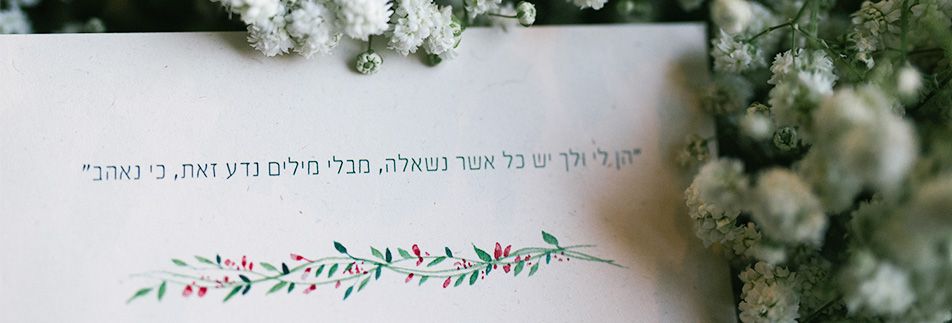 "הן לי ולך יש כל אשר נשאלה, מבלי מילים נדע זאת, כי נאהב"